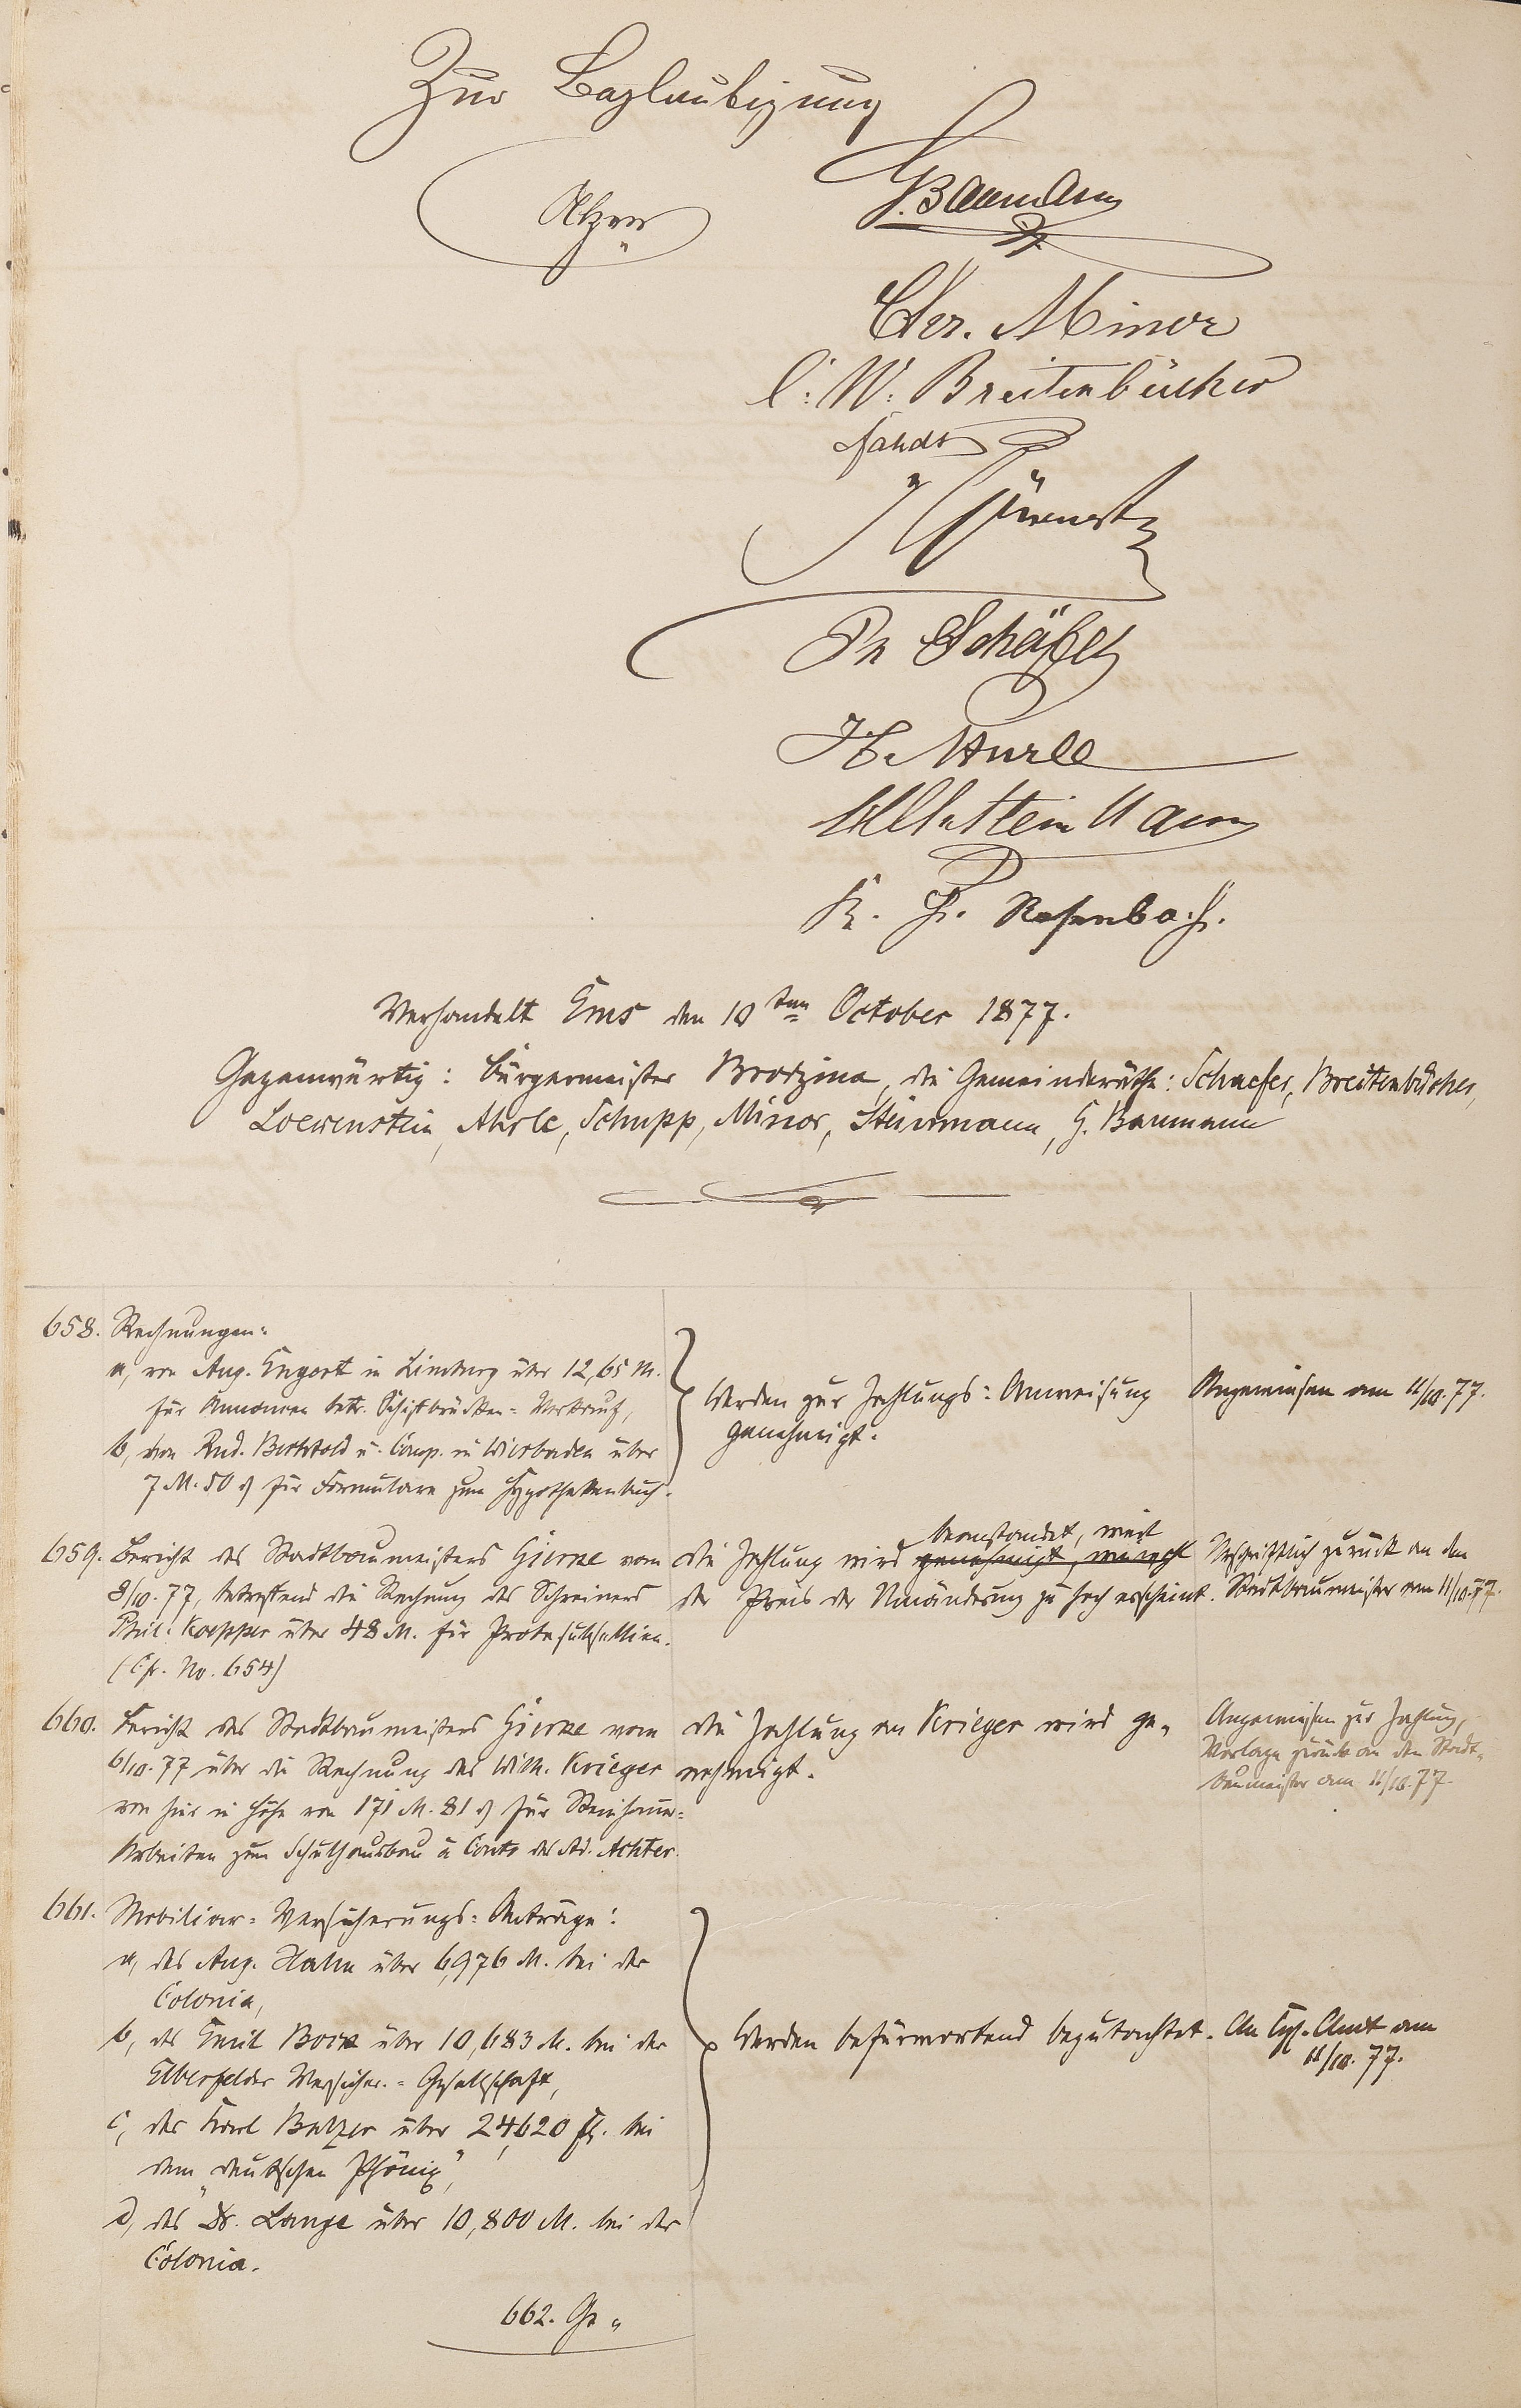 Zur Beglaubigung
G. Baumann
Chr. Minor
C: W: Breitenbücher
Ph Schäfer
K. F. Rosenbach.
Verhandelt Ems den 10ten October 1877.
Gegenwärtig: Bürgermeister Brodzina, die Gemeinderäthe: Schaefer, Breitenbücher,
Loewenstein, Ahrle, Schupp, Minor, Stuirmann, G. Baumann
658. Rechnungen:
a, von Aug. Engert in Limburg über 12,65 M.
für Annoncen betr. Schiffbrücken-Verkauf,
b, von Rud. Bechtold u. Comp. in Wiesbaden über
7 M. 50 ₰ für Formulare zum Hypothekenbuch.
Werden zur Zahlungs-Anweisung
genehmigt.
Angewiesen am 11/10. 77.
659. Bericht des Stadtbaumeisters Gierke vom
8/10. 77, betreffend die Rechnung des Schreiners
Phil. Koepper über 48 M. für Probesubsellien.
(Cfr. No. 654)
beanstandet, weil
Die Zahlung wird genehmigt, wenngl
der Preis der Umänderung zu hoch erscheint.
Urschriftlich zurück an den
Stadtbaumeister am 11/10. 77.
660. Bericht des Stadtbaumeisters Gierke vom
6/10. 77 über die Rechnung des Wilh. Krieger
von hier in Höhe von 171 M. 81 ₰ für Steinhauer-
Arbeiten zum Schulhausbau à Conto des Ad. Achter.
Die Zahlung an Krieger wird ge-
nehmigt.
Angewiesen zur Zahlung,
Vorlage zurück an den Stadt-
baumeister am 11/10. 77.
661. Mobiliar-Versicherungs-Anträge:
a, des Aug. Hahn über 6,976 M. bei der
Colonia,
b, des Emil Bock über 10,683 M. bei der
Elberfelder Versicher.-Gesellschaft,
c, des Karl Balzer über 24,620 M. bei
dem „deutschen Phönix",
d, des Dr. Lange über 10,800 M. bei der
Colonia.
Werden befürwortend begutachtet.
An Kgl. Amt am
11/10. 77.
662. Ge-